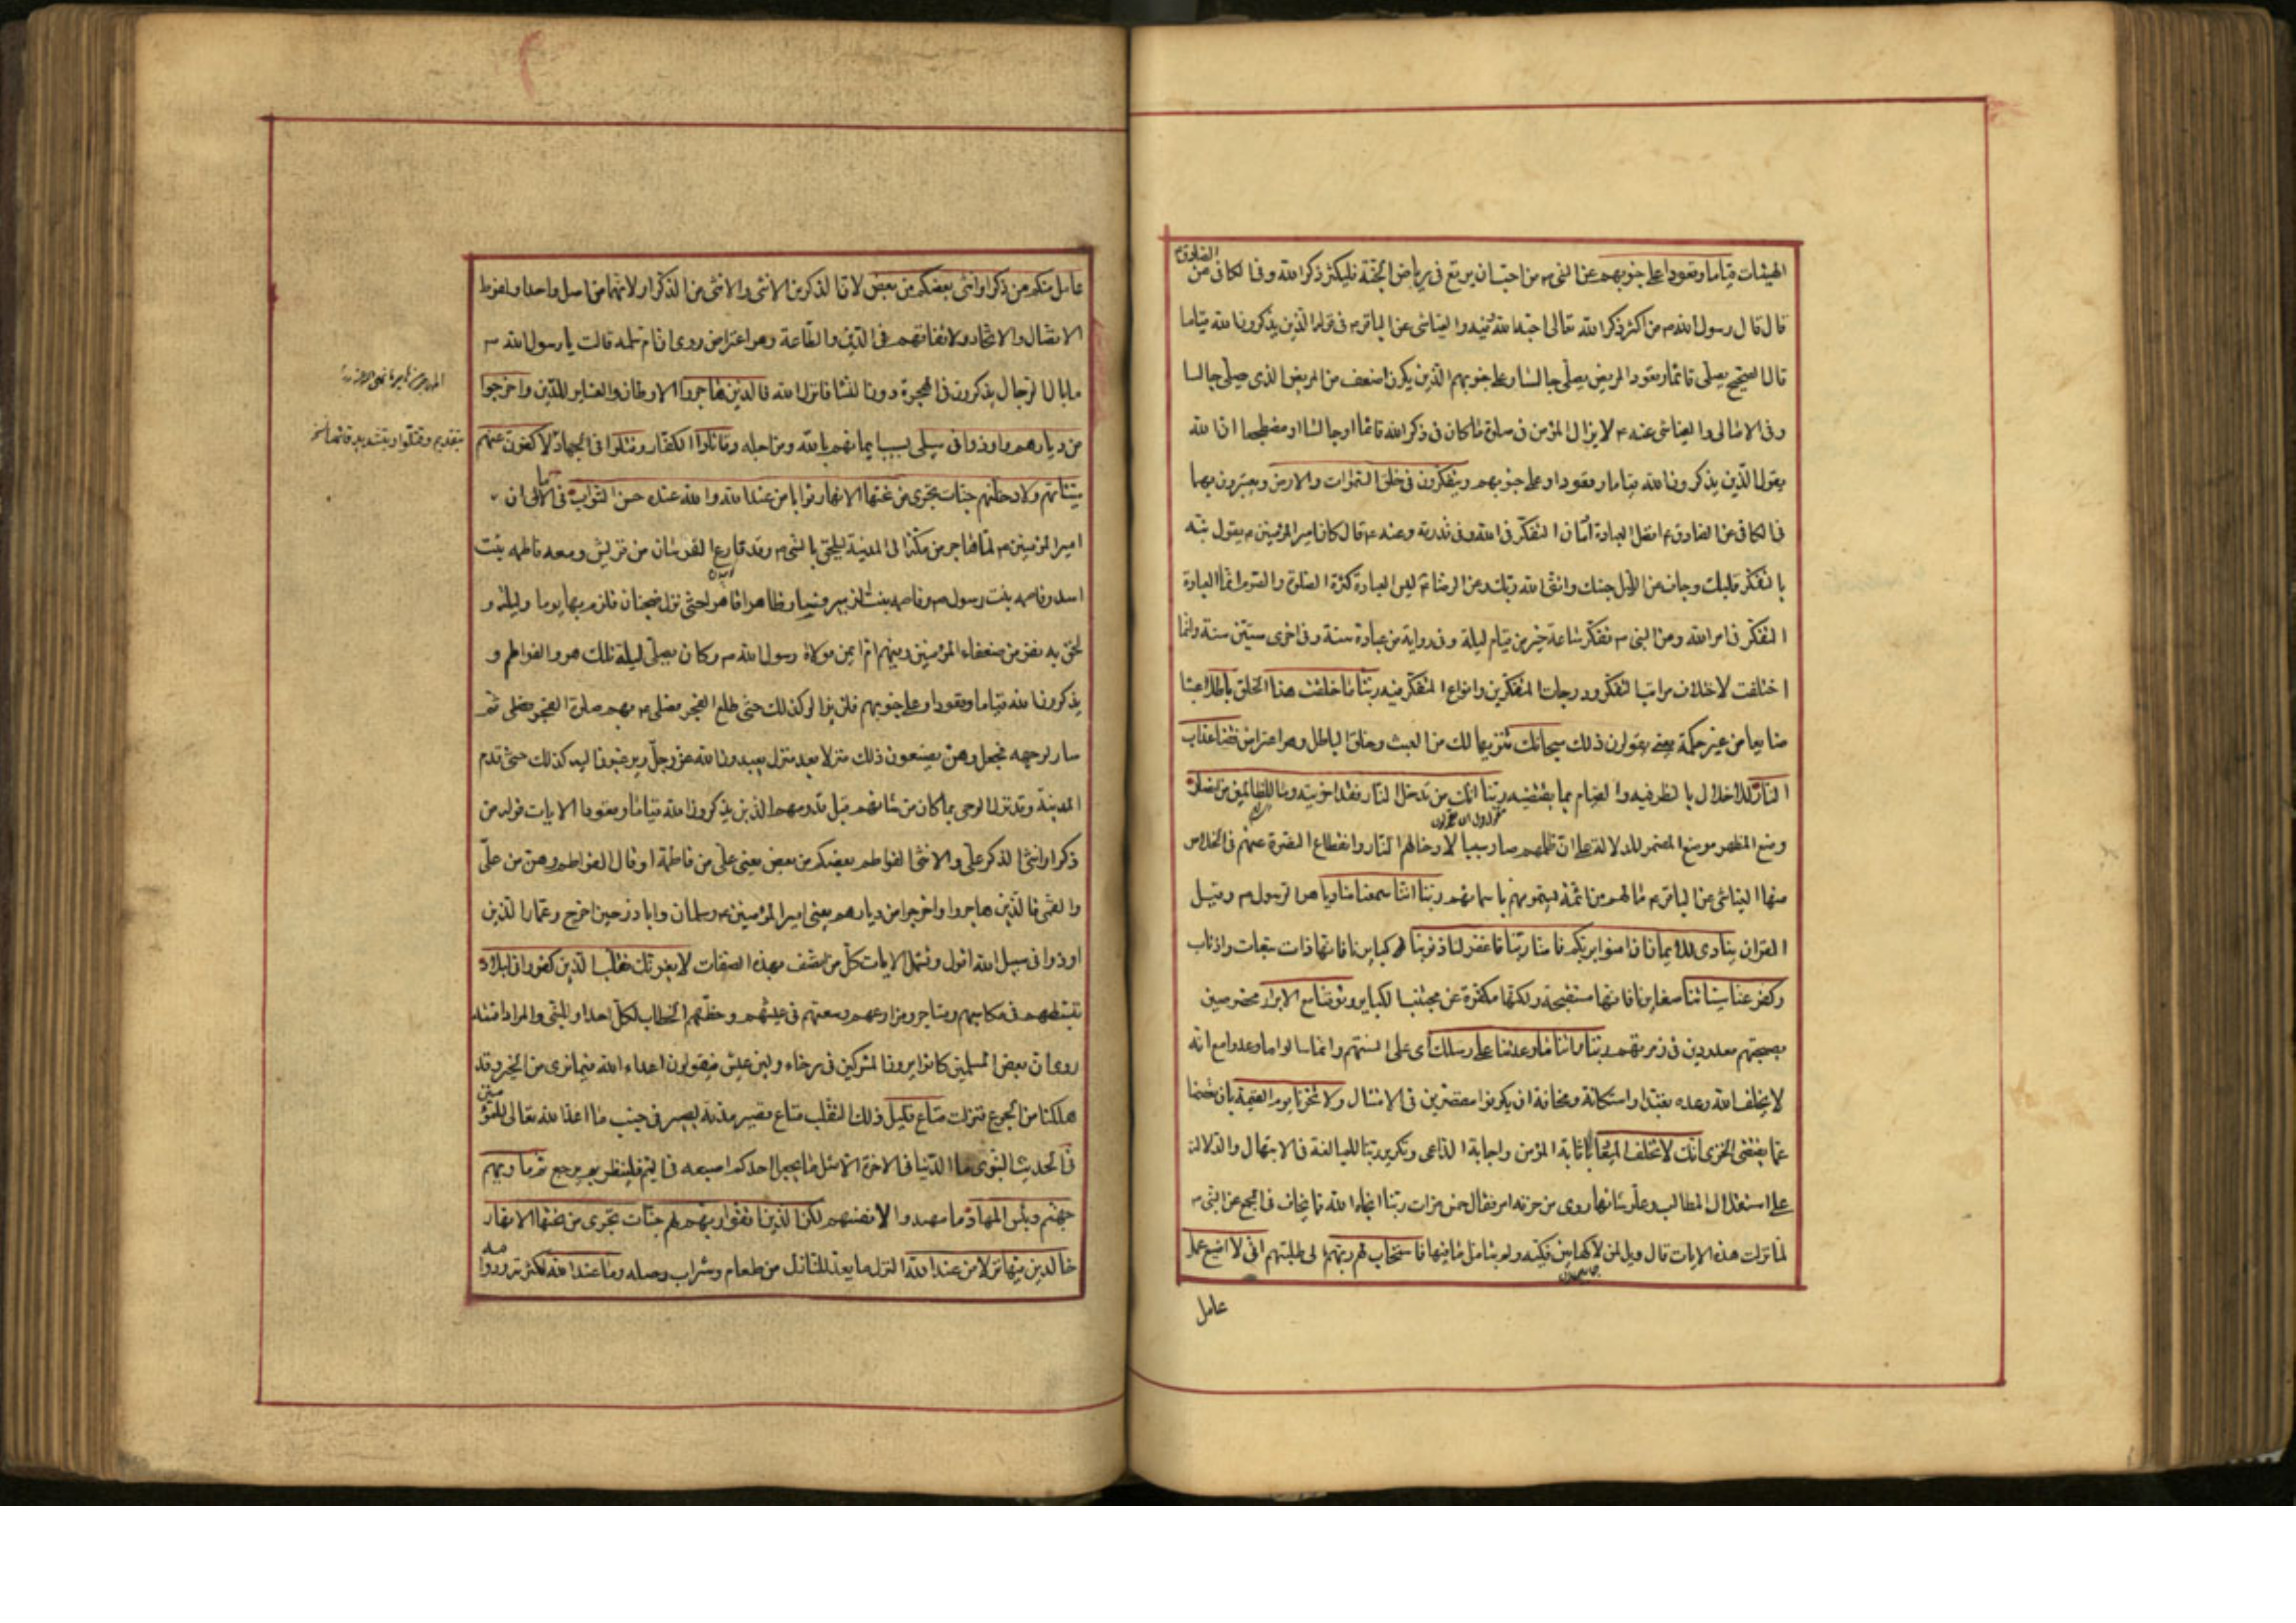 الهيئات قياما وقعودا وعلى جنوبهم عن النبي ص من احب ان يرتع في رياض الجنة فليكثر ذكر الله وفي الكافي عن الصادق ع
قال قال رسول الله ص من اكثر ذكر الله تعالى احبه الله فيه والعياشي عن الباقر ع في قوله الذين يذكرون الله قياما
قال الصحيح يصلي قائما وقعودا المريض يصلي جالسا وعلى جنوبهم الذين يكون اضعف من المريض الذي يصلي جالسا
وفي الامالي والعياشي عنه ع لا يزال المؤمن في صلوة ما كان في ذكر الله قائما او جالسا او مضطجعا ان الله
يقول الذين يذكرون الله قياما وقعودا وعلى جنوبهم ويتفكرون في خلق السموات والارض ويعتبرون بهما
في الكافي عن الصادق ع افضل العبادة ادمان التفكر في الله وفي قدرته وعنه ع قال كان امير المؤمنين ع يقول نبه
بالتفكر قلبك وجاف عن الليل جنبك واتق الله ربك وعن الرضا ع ليس العبادة كثرة الصلوة والصوم انما العبادة
التفكر في امر الله وعن النبي ص تفكر ساعة خير من قيام ليلة وفي رواية من عبادة سنة وفي اخرى ستين سنة وانما
اختلفت لاختلاف مراتب التفكر ودرجات المتفكرين وانواع المتفكر فيه ربنا ما خلقت هذا الخلق باطلا عبثا
ضايعا من غير حكمة يعني يقولون ذلك سبحانك تنزيها لك من العبث وخلق الباطل وهو اعتراض فقنا عذاب
النار للاخلال بالنظر فيه والقيام بما يقتضيه ربنا انك من تدخل النار فقد اخزيته وما للظالمين من انصار
وضع المظهر موضع المضمر للدلالة على ان ظلمهم صار سببا لادخالهم النار وانقطاع النصرة عنهم في الخلاص
منها العياشي عن الباقر ع ما لهم من ائمة يسمونهم باسمائهم ربنا اننا سمعنا مناديا هو الرسول ص وقيل
القران ينادي للايمان ان امنوا بربكم فامنا ربنا فاغفر لنا ذنوبنا كبايرنا فانها ذات تبعات واذناب
وكفر عنا سيئاتنا صغايرنا فانها مستقبحة ولكنها مكفرة عن مجتنب الكباير وتوفنا مع الابرار مخصوصين
بصحبتهم معدودين في زمرتهم ربنا واتنا ما وعدتنا على رسلك اي على السنتهم وانما سالوا ما وعدوا مع انه
لا يخلف الله وعده تعبدا واستكانة ومخافة ان يكونوا مقصرين في الامتثال ولا تخزنا يوم القيمة بان تعصمنا
عما يقتضي الخزي انك لا تخلف الميعاد باثابة المؤمن واجابة الداعي وتكرير ربنا للمبالغة في الابتهال والدلالة
على استقلال المطالب وعلو شانها روي من حزنه امر فقال خمس مرات ربنا انجاه الله مما يخاف في المجمع عن النبي ص
لما نزلت هذه الايات قال ويل لمن لاكها بين فكيه ولم يتامل ما فيها فاستجاب لهم ربهم الى طلبتهم اني لا اضيع عمل
عامل
عامل منكم من ذكر او انثى بعضكم من بعض لان الذكر من الانثى والانثى من الذكر او لانهما من اصل واحد او لفرط
الاتصال والاتحاد ولاتفاقهم في الدين والطاعة وهو اعتراض روي ان ام سلمة قالت يا رسول الله ص
ما بال الرجال يذكرون في الهجرة دون النساء فانزل الله فالذين هاجروا الاوطان والعشاير للدين واخرجوا
من ديارهم واوذوا في سبيلي بسبب ايمانهم بالله ومن اجله وقاتلوا الكفار وقتلوا في الجهاد لاكفرن عنهم
بتقديم وقتلوا وبتشديد
سيئاتهم ولادخلنهم جنات تجري من تحتها الانهار ثوابا من عند الله والله عنده حسن الثواب في الامالي ان
امير المؤمنين ع لما هاجر من مكة الى المدينة ليلحق بالنبي ص وقد قارع الفرسان من قريش ومعه فاطمة بنت
اسد وفاطمة بنت رسول الله ص وفاطمة بنت الزبير فسار ظاهرا قاهرا حتى نزل ضجنان فلزم بها يوما وليلة و
لحق به نفر من ضعفاء المؤمنين وفيهم ام ايمن مولاة رسول الله ص وكان يصلي ليلة تلك هو والفواطم و
يذكرون الله قياما وقعودا وعلى جنوبهم فلن يزالوا كذلك حتى طلع الفجر فصلى ع بهم صلوة الفجر ثم
سار لوجهه فجعل وهن يصنعون ذلك منزلا بعد منزل يعبدون الله عز وجل ويرغبون اليه كذلك حتى قدم
المدينة وقد نزل الوحي بما كان من شانهم قبل قدومهم الذين يذكرون الله قياما وقعودا الايات قوله من
ذكر او انثى الذكر علي والانثى الفواطم بعضكم من بعض يعني علي من فاطمة او قال الفواطم وهن من علي
والقمي فالذين هاجروا واخرجوا من ديارهم يعني امير المؤمنين ع وسلمان وابا ذر حين اخرج وعمارا الذين
اوذوا في سبيل الله اقول وتشمل الايات كل من اتصف بهذه الصفات لا يغرنك تقلب الذين كفروا في البلاد
تبسطهم في مكاسبهم ومتاجرهم ومزارعهم وسعتهم في عيشهم وحظهم الخطاب لكل احد او للنبي والمراد امته
روي ان بعض المسلمين كانوا يرون المشركين في رخاء ولين عيش فيقولون ان اعداء الله فيما نرى من الخير وقد
هلكنا من الجوع فنزلت متاع قليل ذلك التقلب متاع قصير مدته يسير في جنب ما اعد الله تعالى للمؤمنين
في الحديث النبوي ما الدنيا في الاخرة الا مثل ما يجعل احدكم اصبعه في اليم فلينظر بم يرجع ثم ماويهم
جهنم وبئس المهاد ما مهدوا لانفسهم لكن الذين اتقوا ربهم لهم جنات تجري من تحتها الانهار
خالدين فيها نزلا من عند الله النزل ما يعد للنازل من طعام وشراب وصلة وما عند الله لكثرته ودوامه